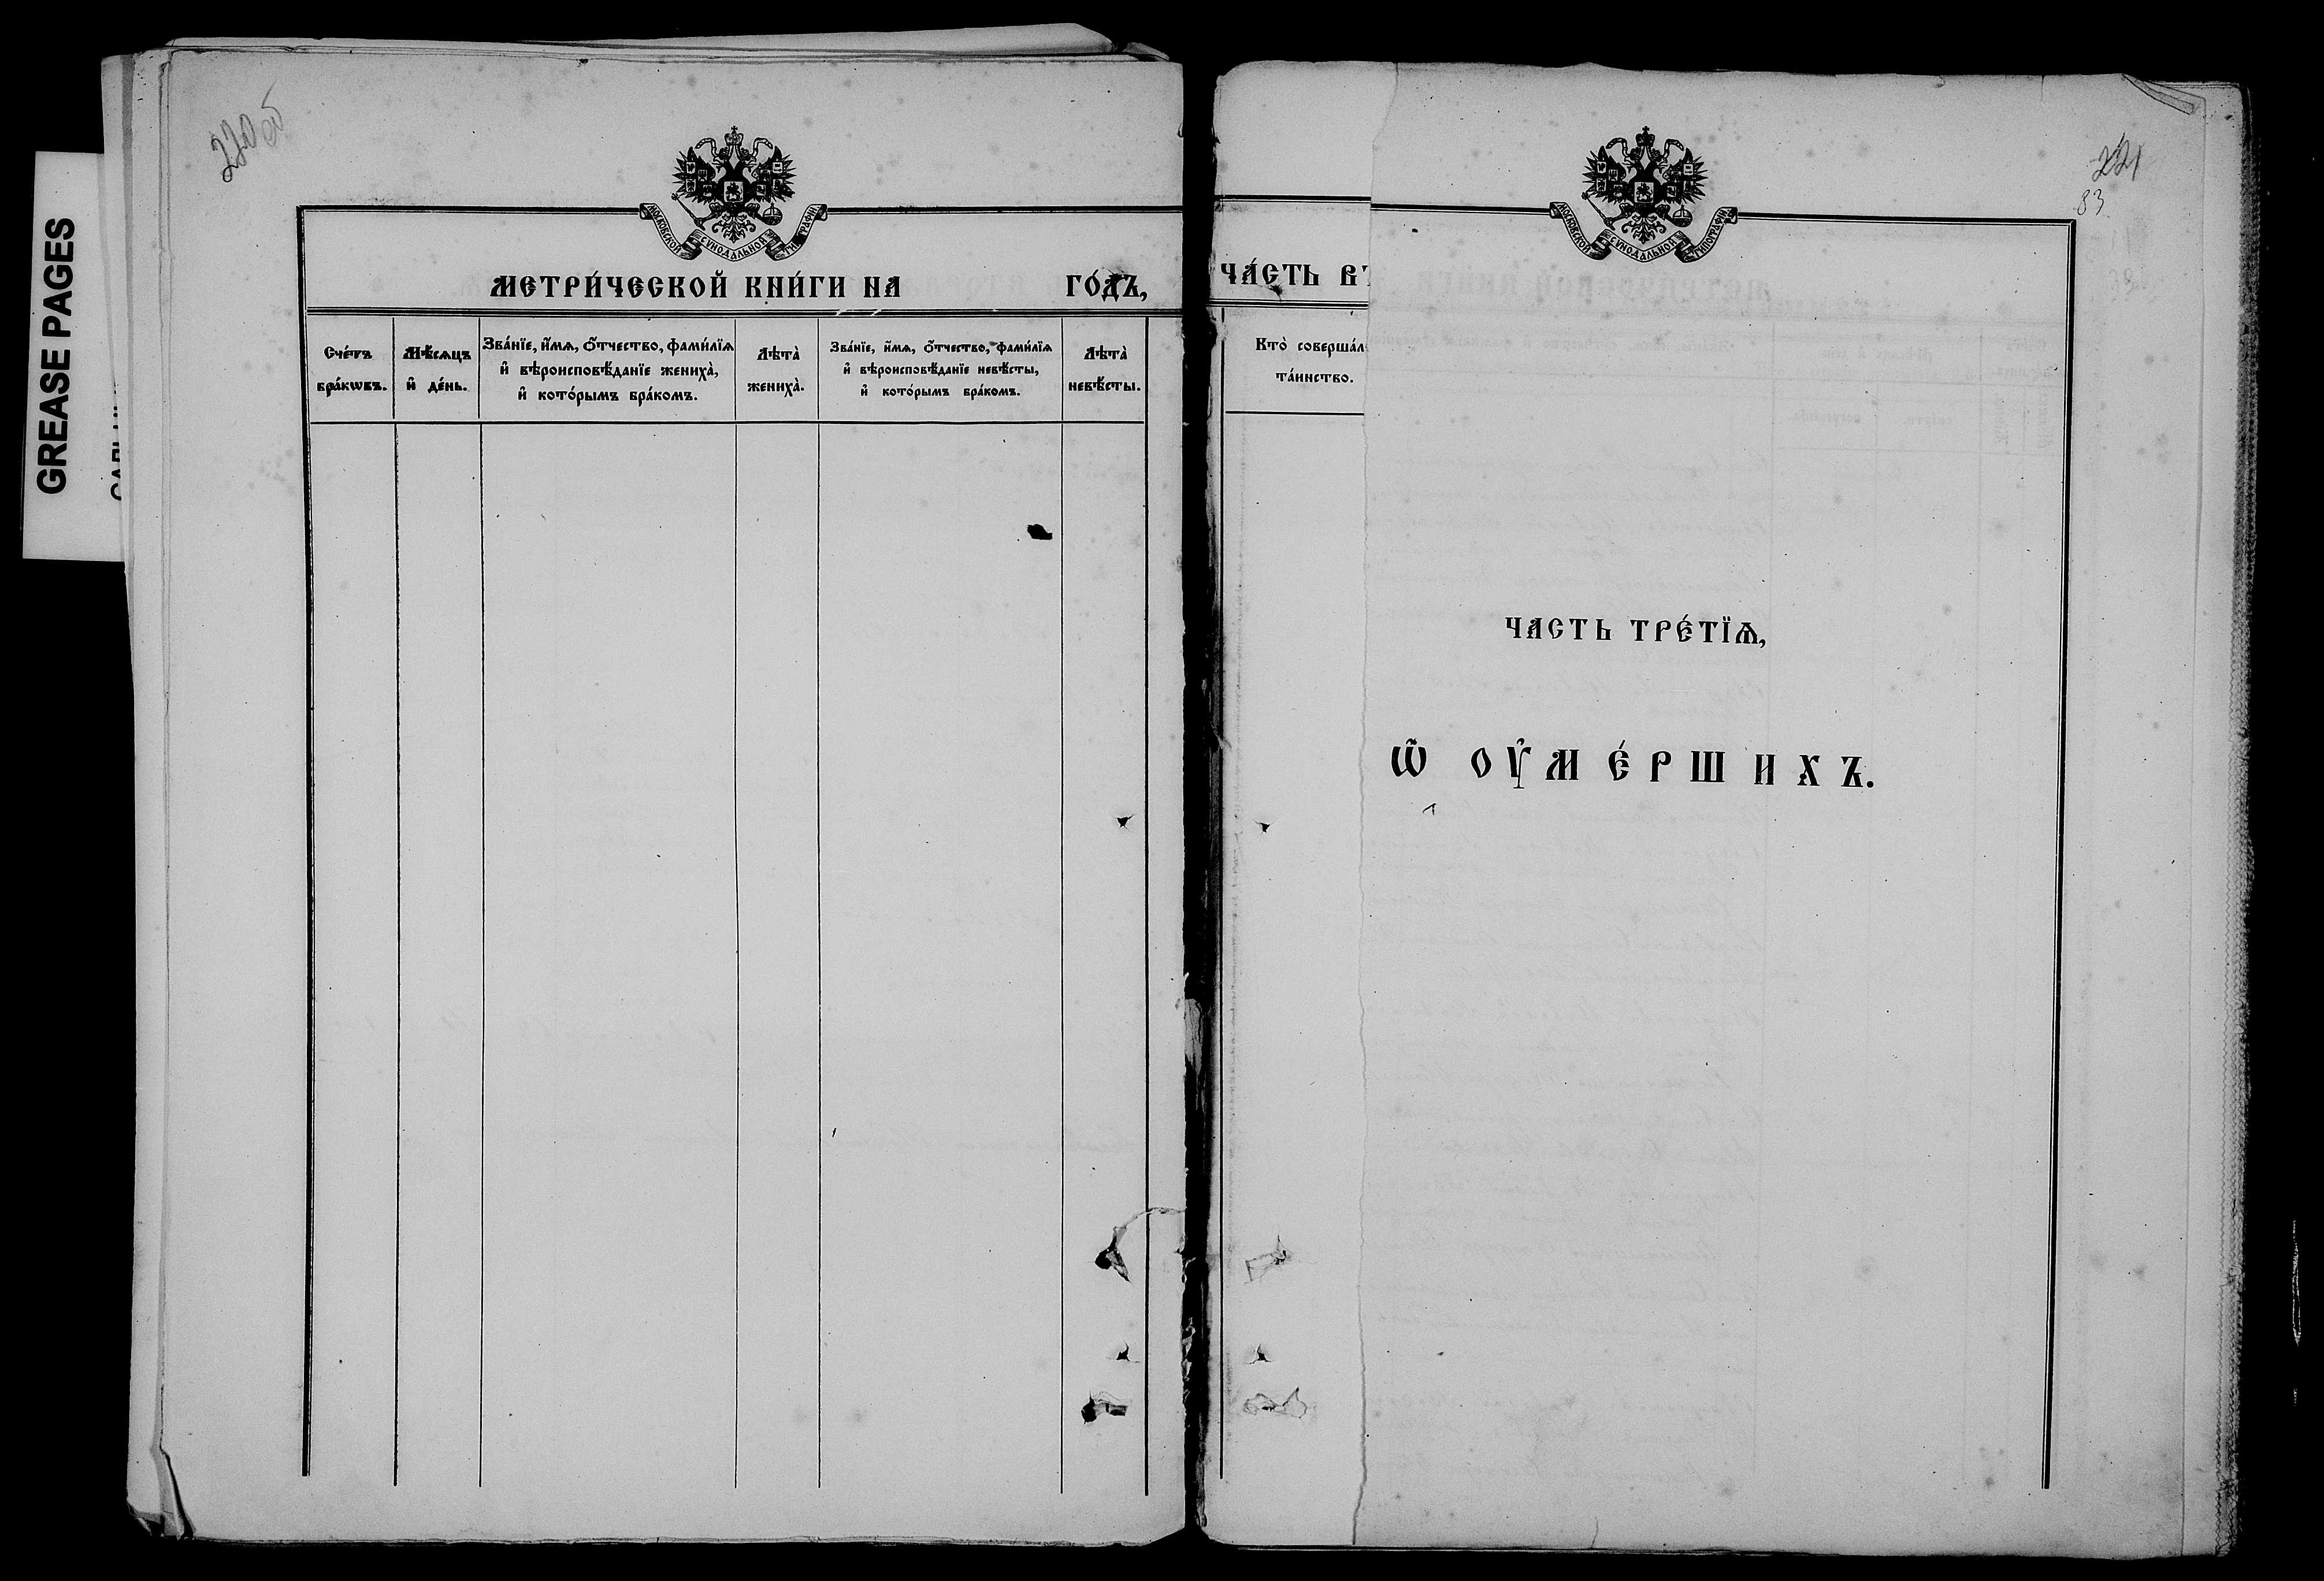 GREASE PAGES
220 об
МОСКОВСКОЙ СѴНОДАЛЬНОЙ ТИПОГРАФІИ
МЕТРИ́ЧЕСКОЙ КНИ́ГИ НА ГО́ДЪ,
Сче́тъ бра́кѡвъ.
Мѣ́сѧцъ и҆ де́нь.
Зва́нїе, и҆́мѧ, ѻ҆́тчество, фами́лїѧ
и҆ вѣроисповѣ́данїе жениха̀,
и҆ кото́рымъ бра́комъ.
Лѣта̀ жениха̀.
Зва́нїе, и҆́мѧ, ѻ҆́тчество, фами́лїѧ
и҆ вѣроисповѣ́данїе невѣ́сты,
и҆ кото́рымъ бра́комъ.
Лѣта̀ невѣ́сты.
ЧА́СТЬ ВТ
Кто̀ соверша́л
та́инство.
221
83
МОСКОВСКОЙ СѴНОДАЛЬНОЙ ТИПОГРАФІИ
ЧАСТЬ ТРЕ́ТЇѦ,
Ѽ ОУ҆МЕ́РШИХЪ.